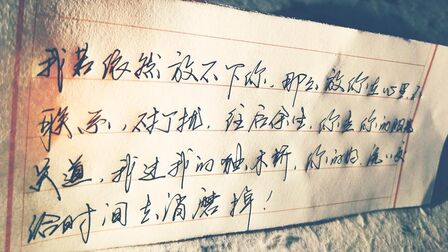 我若依然放不下你，那么放你在心里不
联系，不打扰，往后余生，你走你的阳
关道，我过我的独木桥，你的好，
给时间去消磨掉！